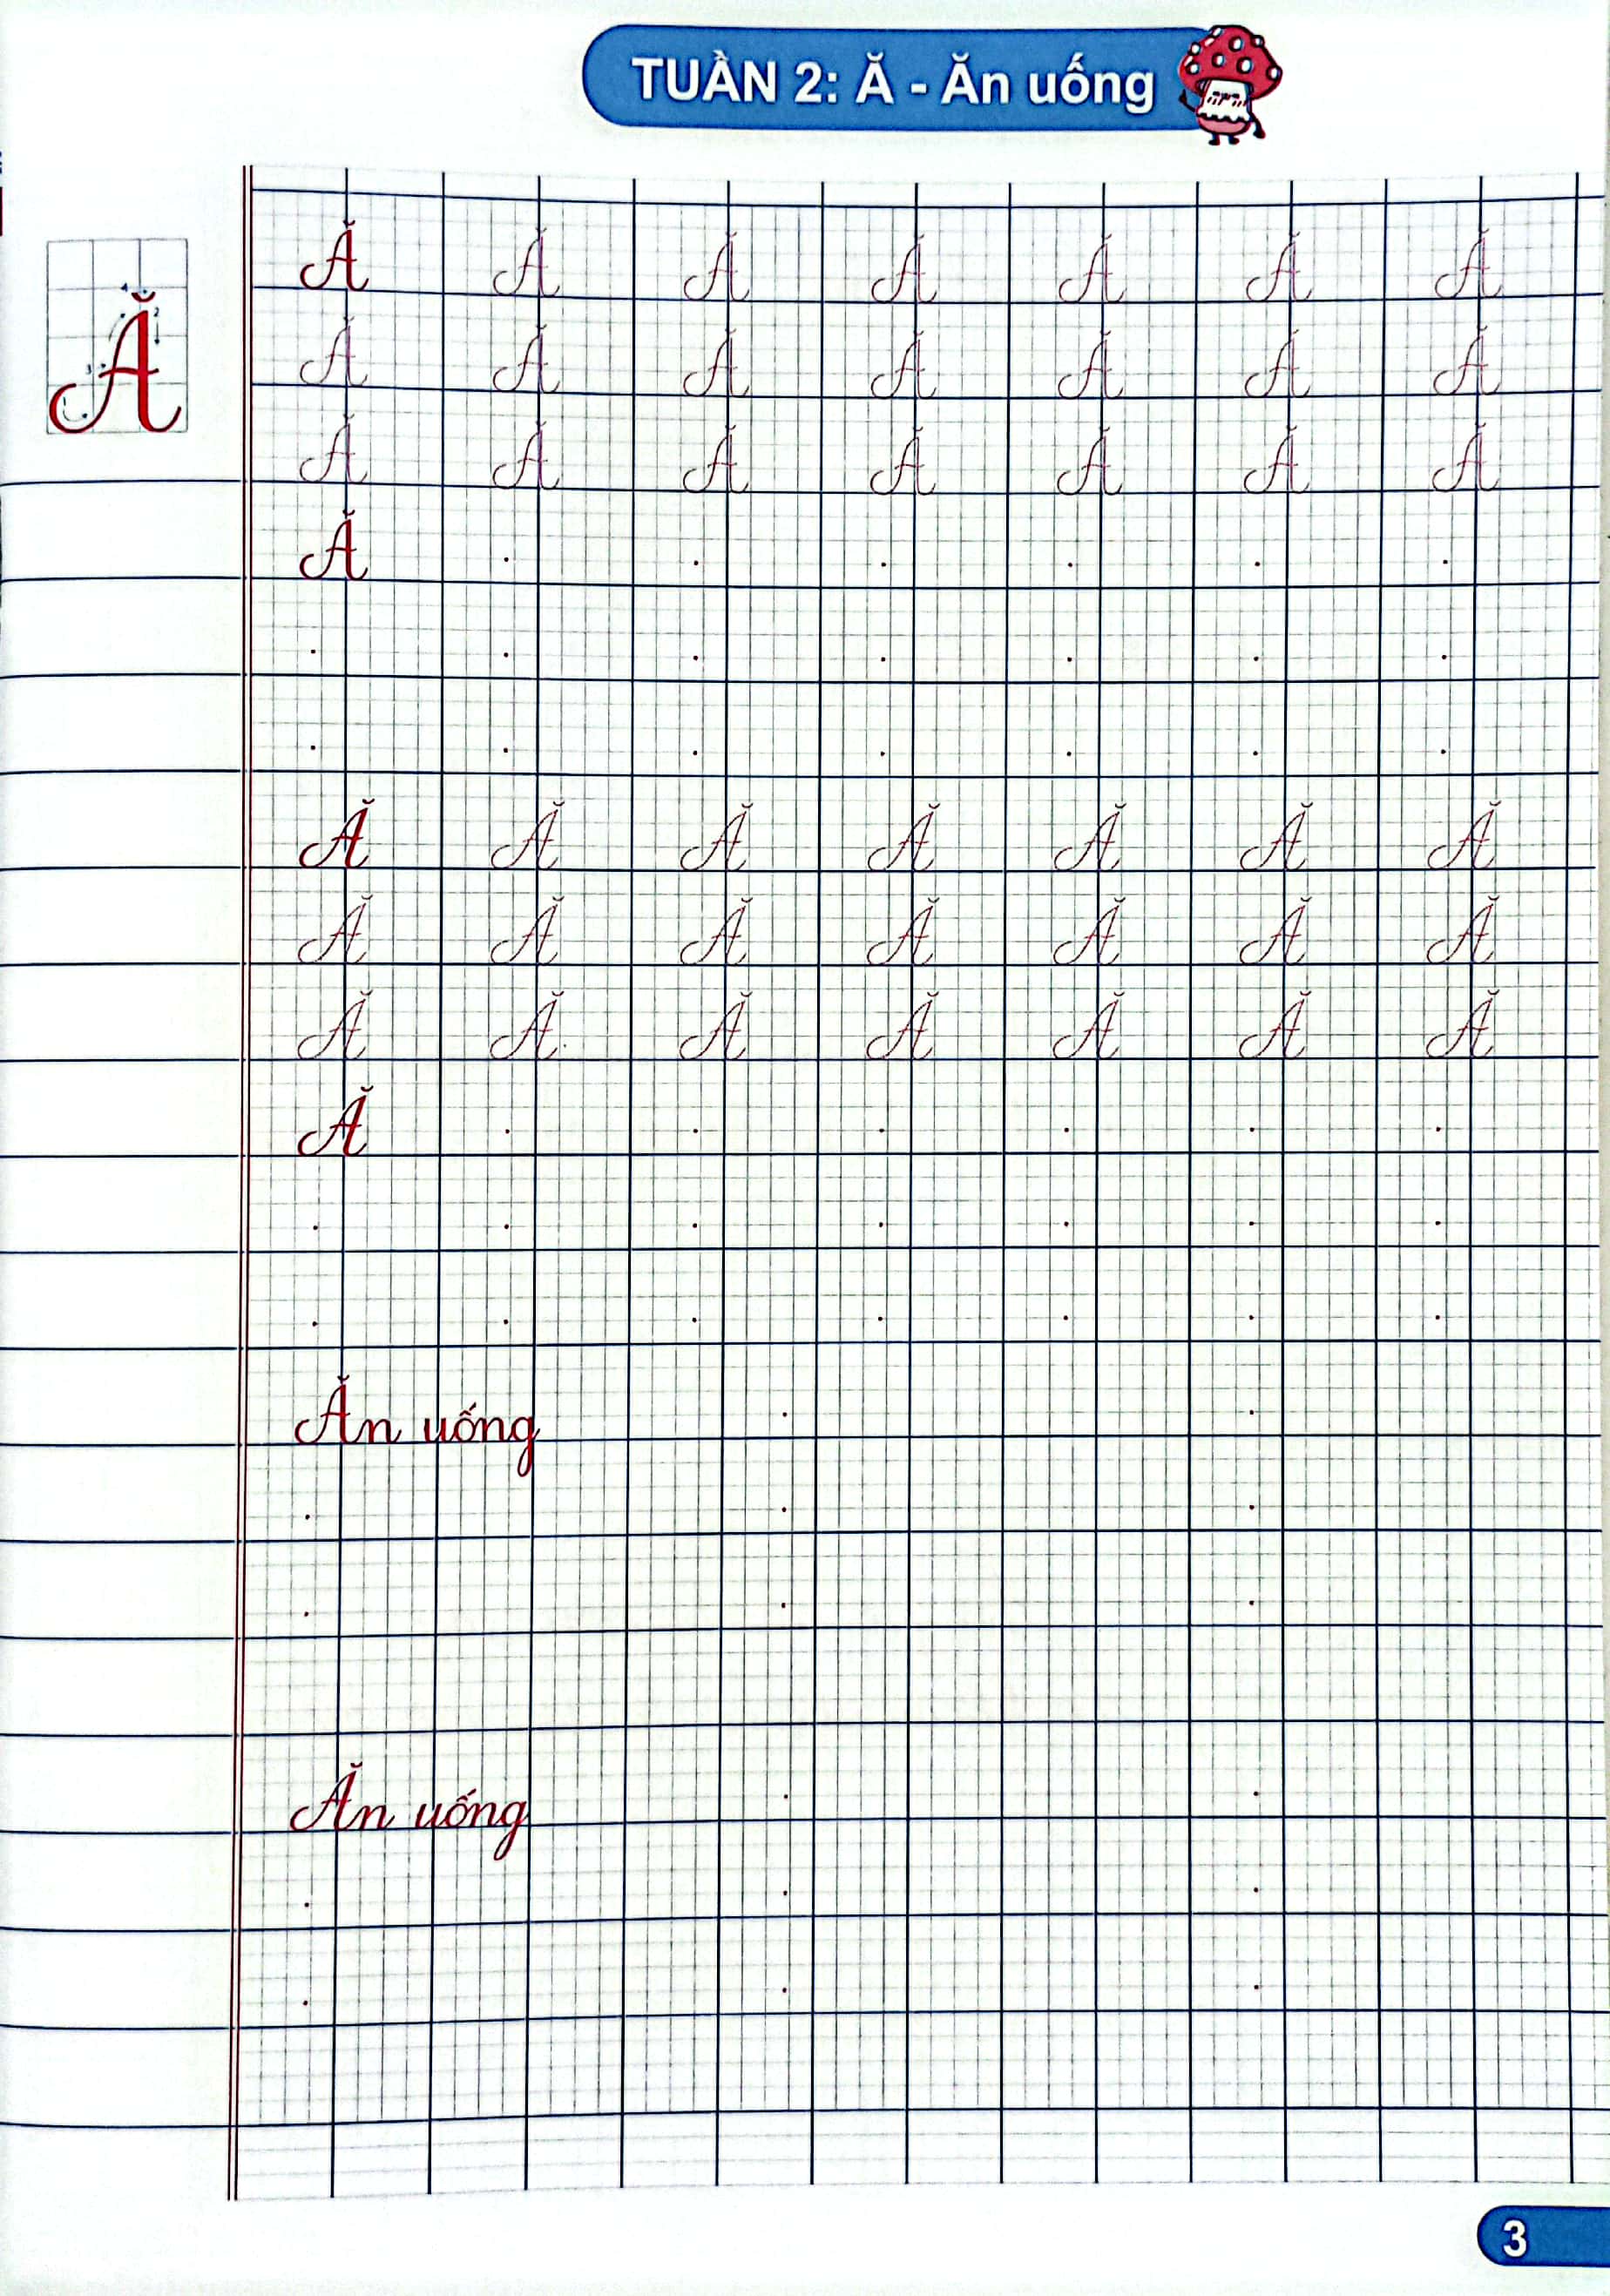 TUẦN 2: Ă - Ăn uống
Ă
Ă Ă Ă Ă Ă Ă Ă
Ă Ă Ă Ă Ă Ă Ă
Ă Ă Ă Ă Ă Ă Ă
Ă
Ă Ă Ă Ă Ă Ă Ă
Ă Ă Ă Ă Ă Ă Ă
Ă Ă Ă Ă Ă Ă Ă
Ă
Ăn uống
Ăn uống
3